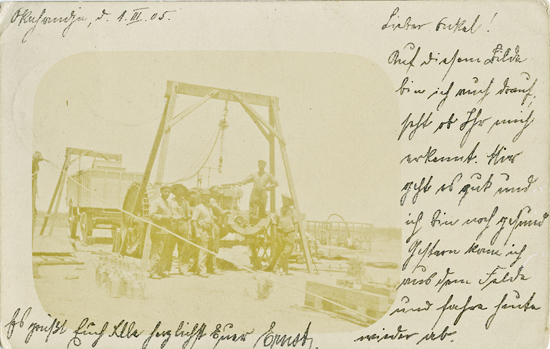 Okahandja, d. 1. III. 05.
Lieber Onkel!
Auf diesem Bilde
bin ich auch drauf,
seht ob Ihr mich
erkennt. Mir
geht es gut und
ich bin noch gesund
Gestern kam ich
aus dem Felde
und fahre heute
wieder ab.
Es grüßt Euch Alle herzlichst Euer Ernst.